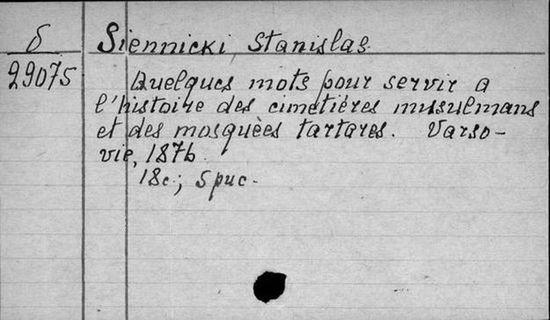 б
Siennicki Stanislas.
29075
Quelques mots pour servir a
l'histoire des cimetières musulmans
et des mosquèes tartares. Varso-
vie, 1876.
18c.; 5 рис.